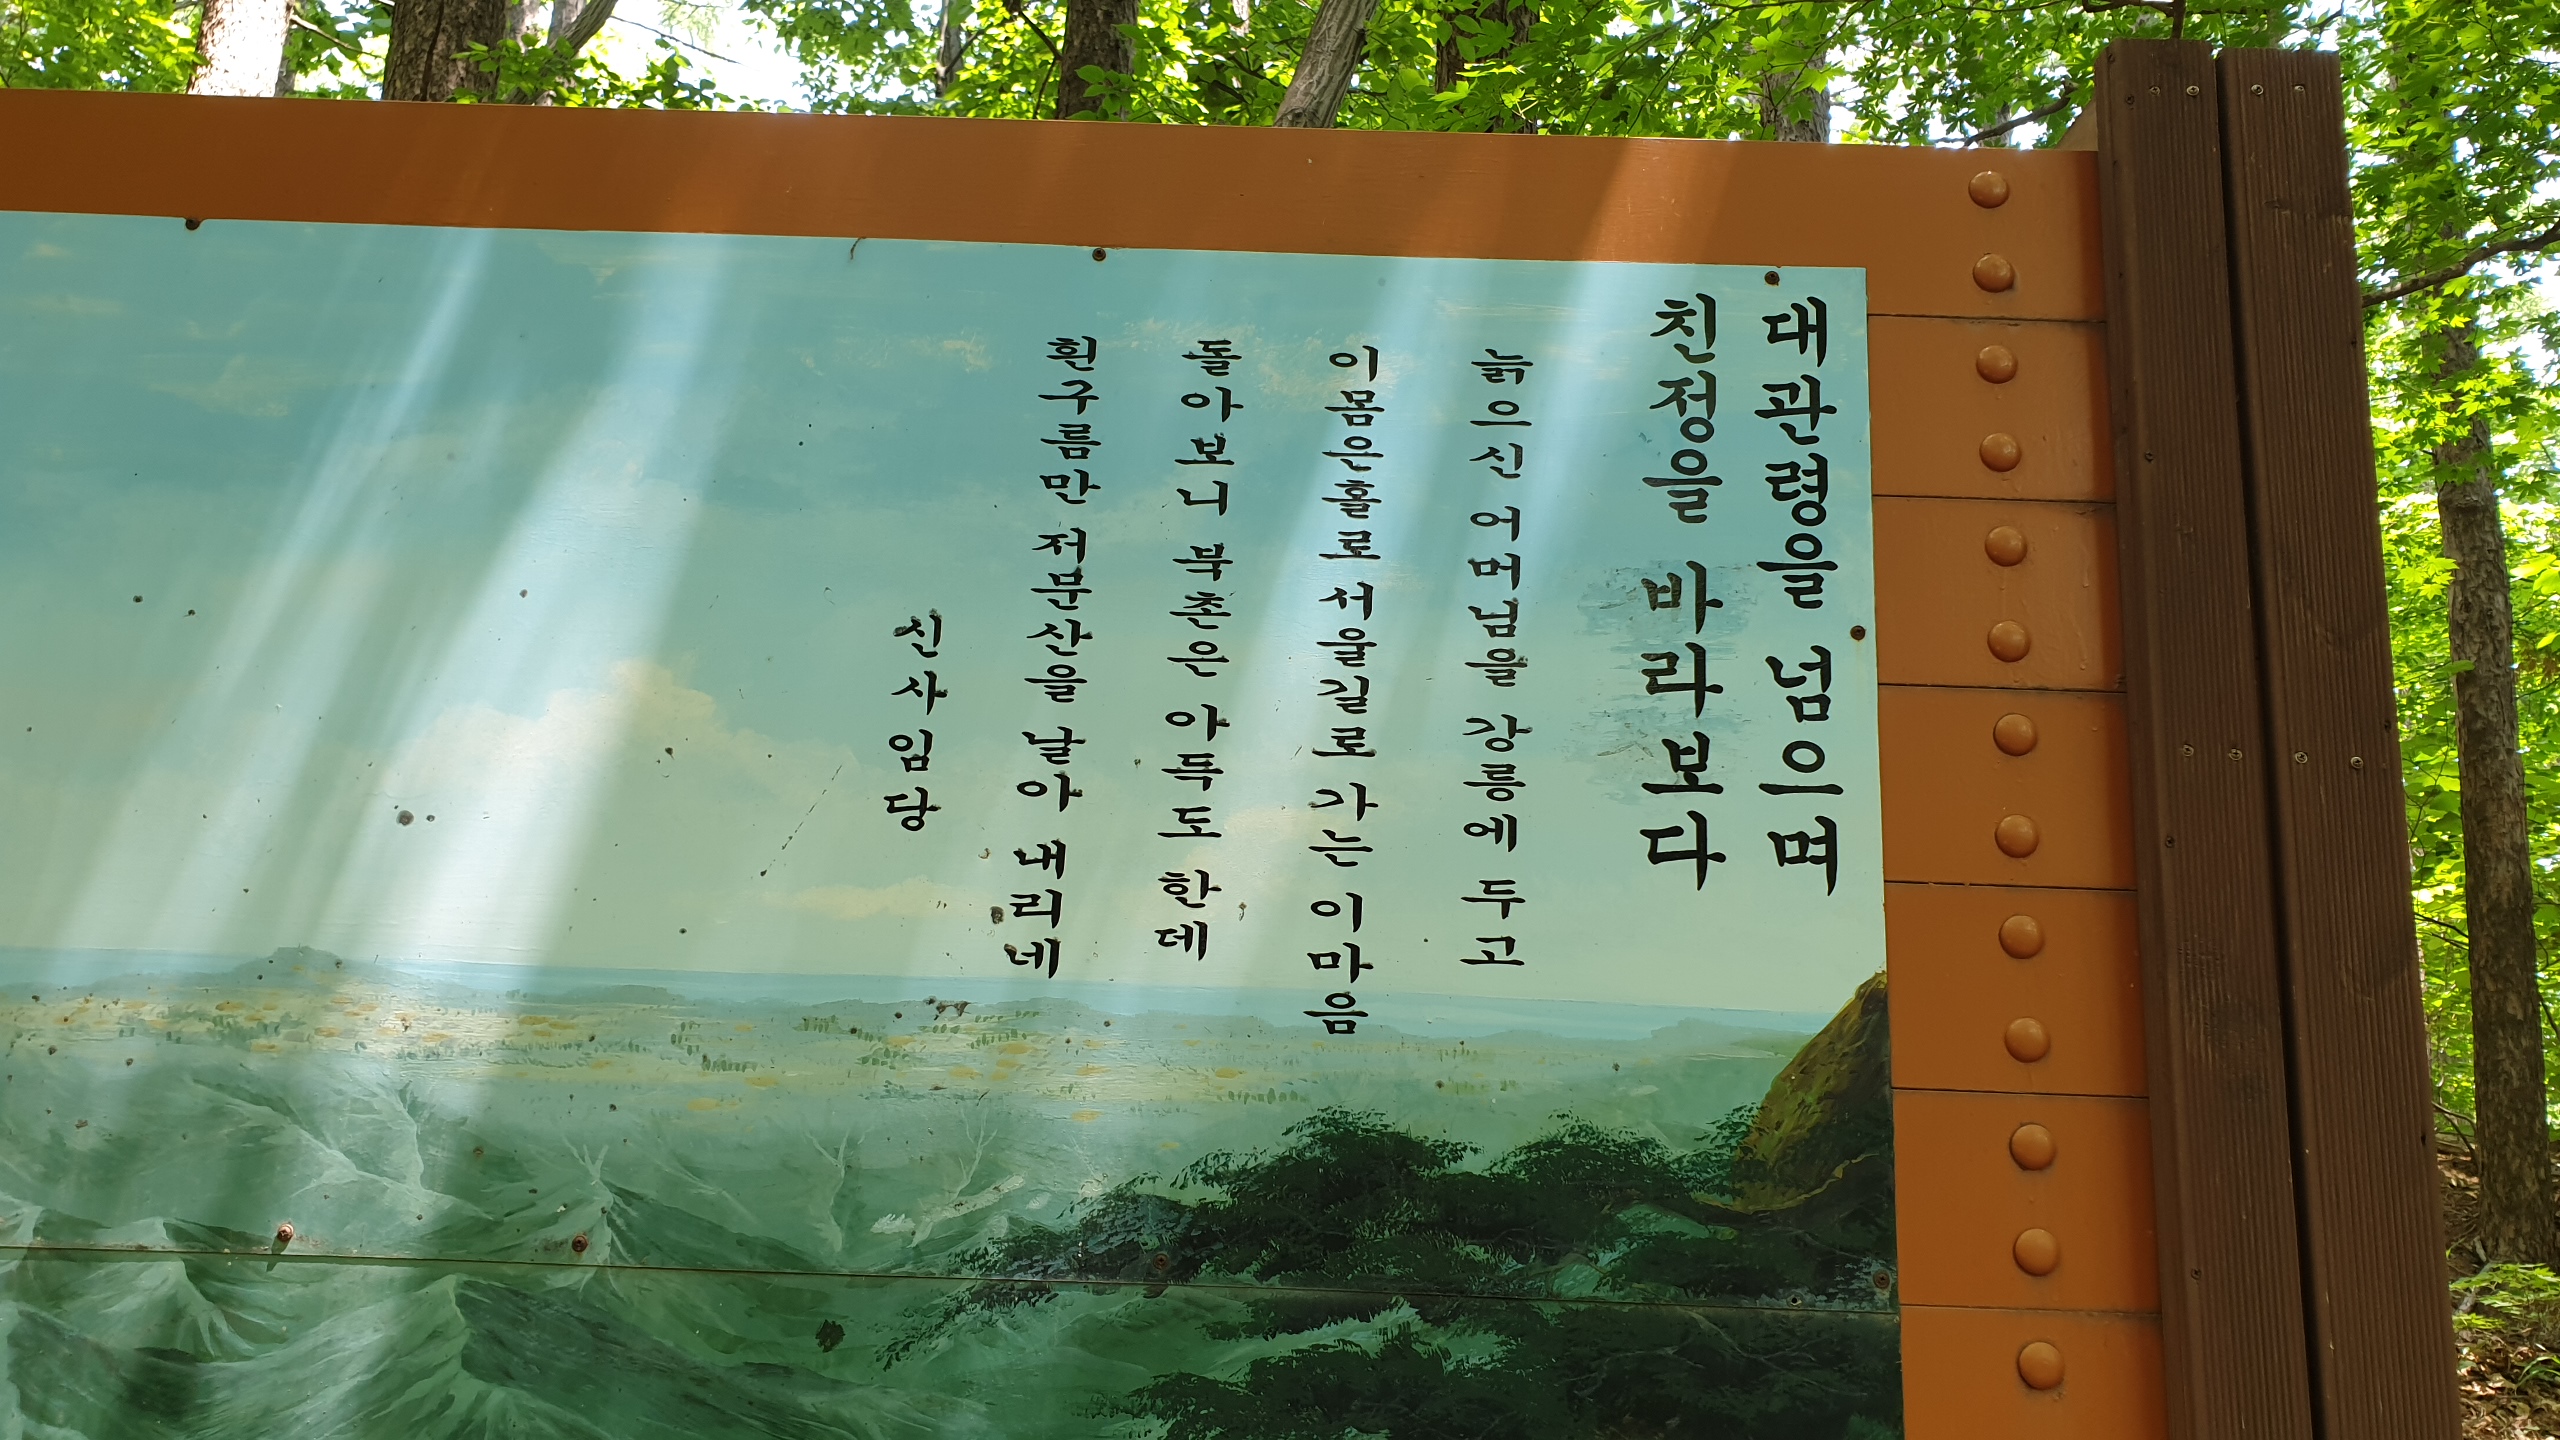 대관령을 넘으며
친정을 바라보다
늙으신 어머님을 강릉에 두고
이몸은홀로 서울길로 가는 이마음
돌아보니 북촌은 아득도 한데
흰구름만 저문산을 날아 내리네
신사임당